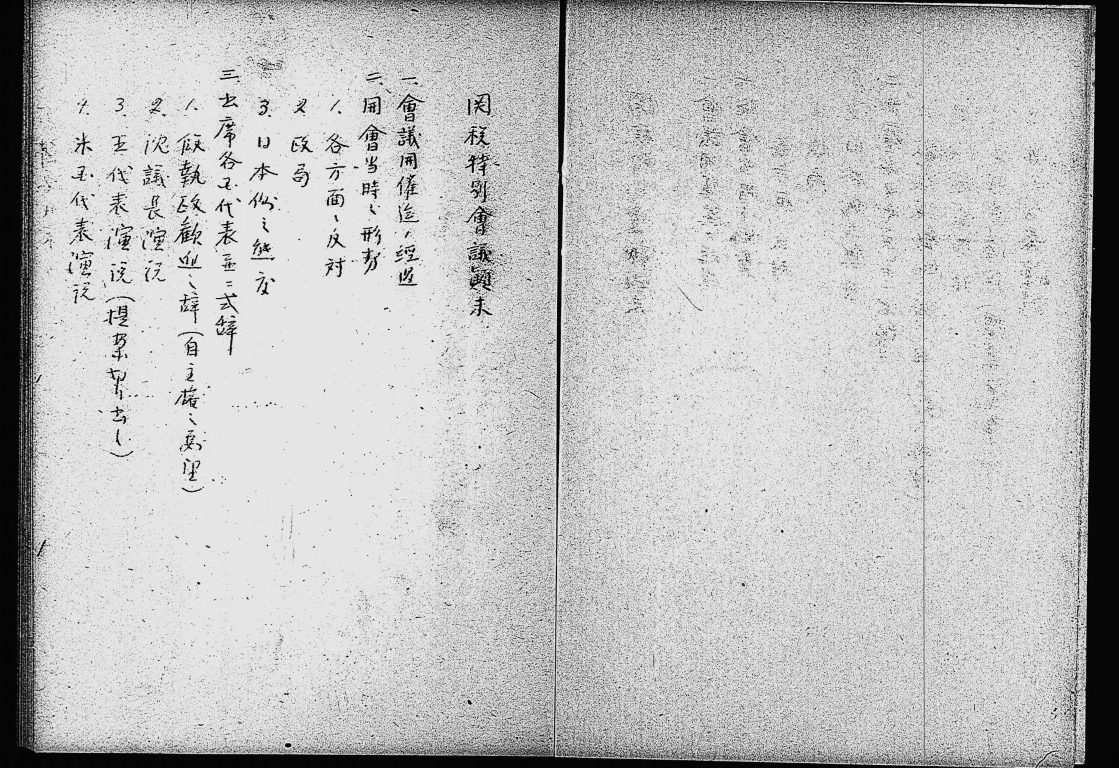 関税特別會議顛末
一、會議開催迄ノ経過
二、開會当時ノ形勢
1. 各方面ノ反対
2. 政局
3. 日本側ノ態度
三、出席各国代表並ニ式辞
1. 仮執政歓迎ノ辞(自主権ノ要望)
2. 沈議長演説
3. 王代表演説(提案切出し)
4. 米国代表演説